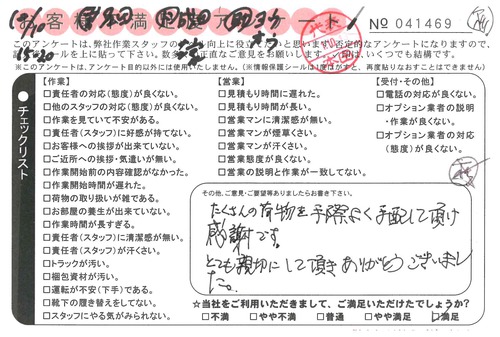 お客様満足度アンケート
No 041469
このアンケートは、弊社作業スタッフの
向上に役立てたいと思います。否定的なアンケートになりますので、
数多
正直なご意見をお願いします。尚、いくつでも結構です。
(※このアンケートは、アンケート目的以外には使用いたしません。(※情報保護シールは1度はがすと、再度貼りなおすことはできません)
15:20
チェックリスト
【作業】
□責任者の対応(態度)が良くない。
□他のスタッフの対応(態度)が良くない。
□作業を見ていて不安がある。
□責任者(スタッフ)に好感が持てない。
□お客様への挨拶が出来ていない。
□ご近所への挨拶・気遣いが無い。
□作業開始前の内容確認がなかった。
□作業開始時間が遅れた。
□荷物の取り扱いが雑である。
□お部屋の養生が出来ていない。
□作業時間が長すぎる。
□責任者(スタッフ)に清潔感が無い。
□責任者(スタッフ)が汗くさい。
□トラックが汚い。
□梱包資材が汚い。
□運転が不安(下手)である。
□靴下の履き替えをしてない。
□スタッフにやる気がみられない。
【営業】
□見積もり時間に遅れた。
□見積もり時間が長い。
□営業マンに清潔感が無い。
□営業マンが煙草くさい。
□営業マンが汗くさい。
□営業態度が良くない。
□営業の説明と作業が一致してない。
【受付・その他】
□電話の対応が良くない。
□オプション業者の説明
・作業が良くない。
□オプション業者の対応
(態度)が良くない。
その他、ご意見・ご要望等ありましたらお書き下さい。
たくさんの荷物を手際よく手配して頂け
感謝です。
とても親切にして頂きありがとうございまし
た。
☆当社をご利用いただきまして、ご満足いただけたでしょうか?
□不満 □やや不満 □普通 □やや満足 □満足